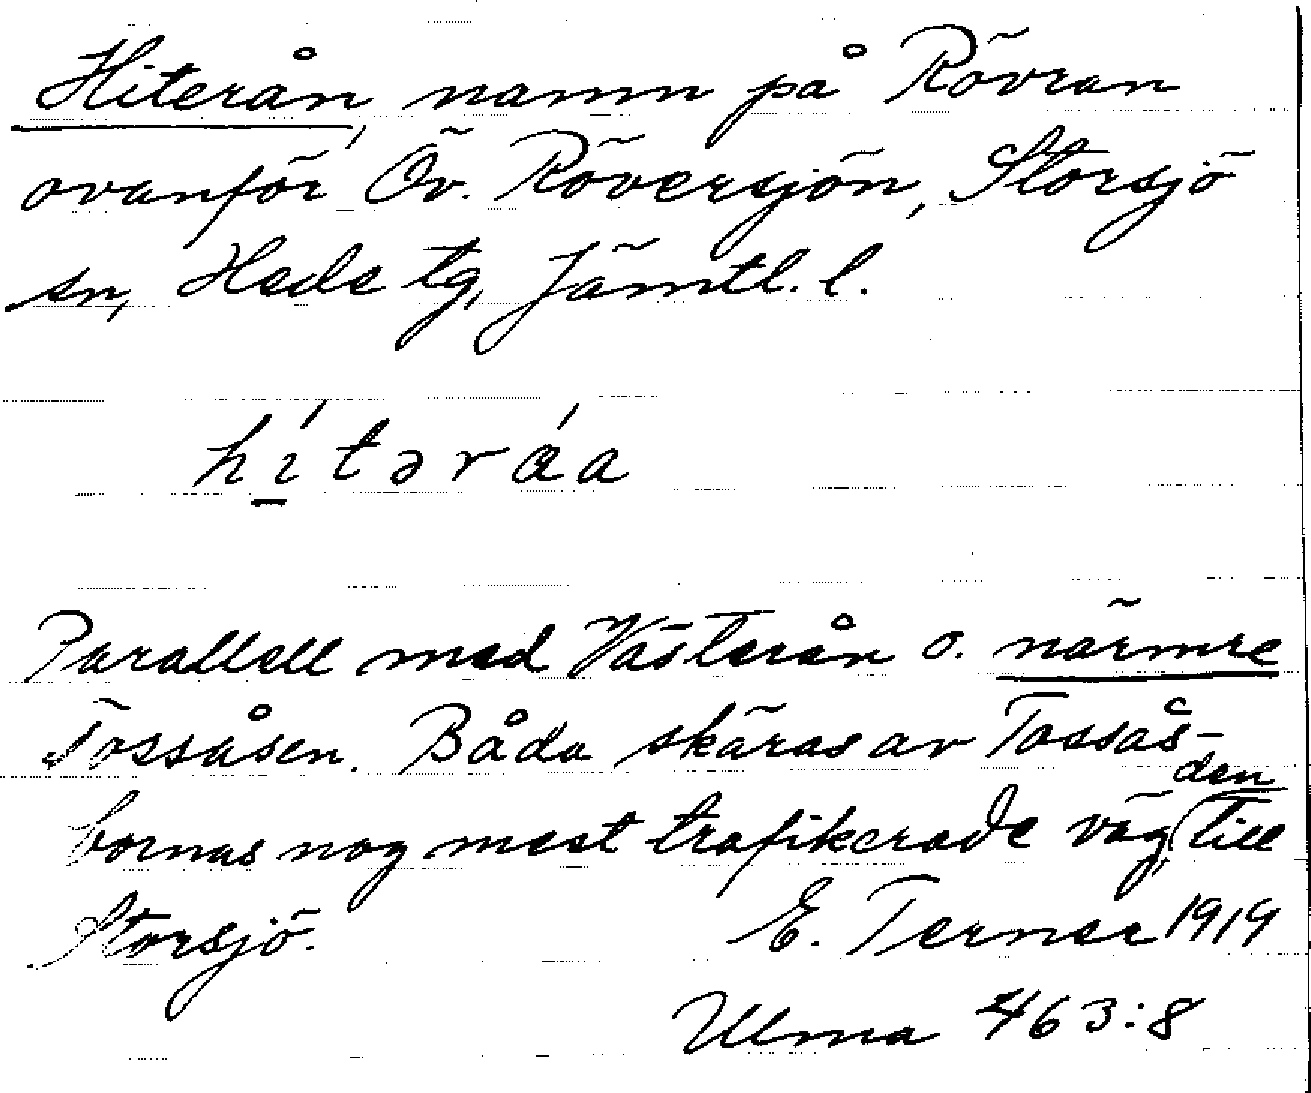 Hiterån, namn på Rövran
ovanför Öv. Röversjön, Storsjö
sn, Hede tg, Jämtl. l.
hı́tərǽa
Parallell med Västerån o. närmre
Tossåsen. Båda skäras av Tossås-
bornas nog mest trafikerade väg, den till
Storsjö. E. Terner 1919
Ulma 463:8